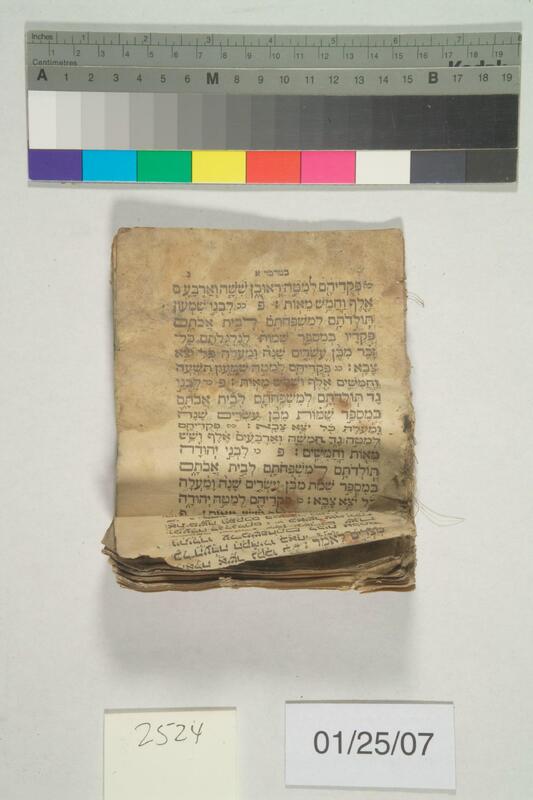 Inches 1 2 3 4 5 6 7 8
Centimetres 1 2 3 4 5 6 7 8 9 10 11 12 13 14 15 16 17 18 19
Kodak
A 1 2 3 4 5 6 M 8 9 10 11 12 13 14 15 B 17 18 19
במדבר א
כא פקדיהם למטה ראובן ששה וארבעים
אלף וחמש מאות : פ כב לבני שמעון
תולדתם למשפחתם לבית אבתם
פקדיו במספר שמות לגלגלתם כל
זכר מבן עשרים שנה ומעלה כל יצא
צבא : כג פקדיהם למטה שמעון תשעה
וחמשים אלף ושלש מאות : פ כד לבני
גד תולדתם למשפחתם לבית אבתם
במספר שמות מבן עשרים שנה
ומעלה כל יצא צבא : כה פקדיהם
למטה גד חמשה וארבעים אלף ושש
מאות וחמשים : פ כו לבני יהודה
תולדתם למשפחתם לבית אבתם
במספר שמת מבן עשרים שנה ומעלה
כל יצא צבא : כז פקדיהם למטה יהודה
2524
01/25/07